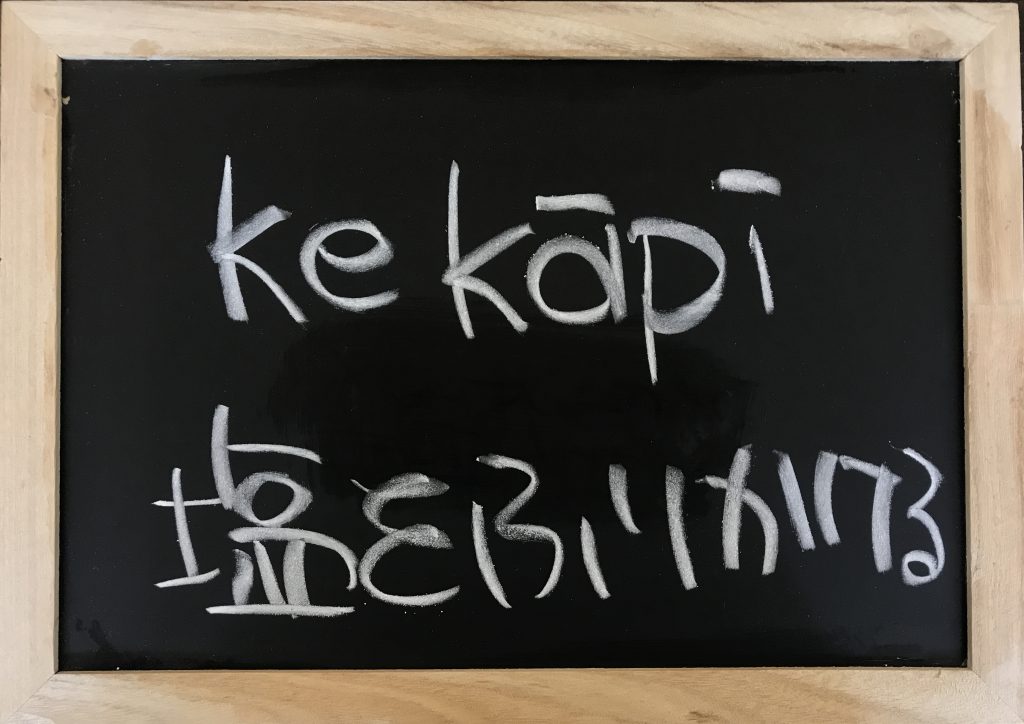 ke kāpī
塩をふりかける